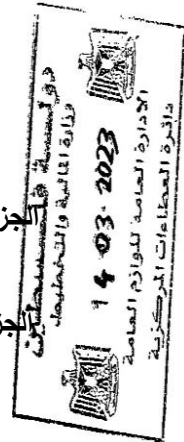 دولة فلسطين
وزارة المالية والتخطيط
14 -03- 2023
الإدارة العامة للوازم العامة
دائرة العطاءات المركزية
الجز
الجز